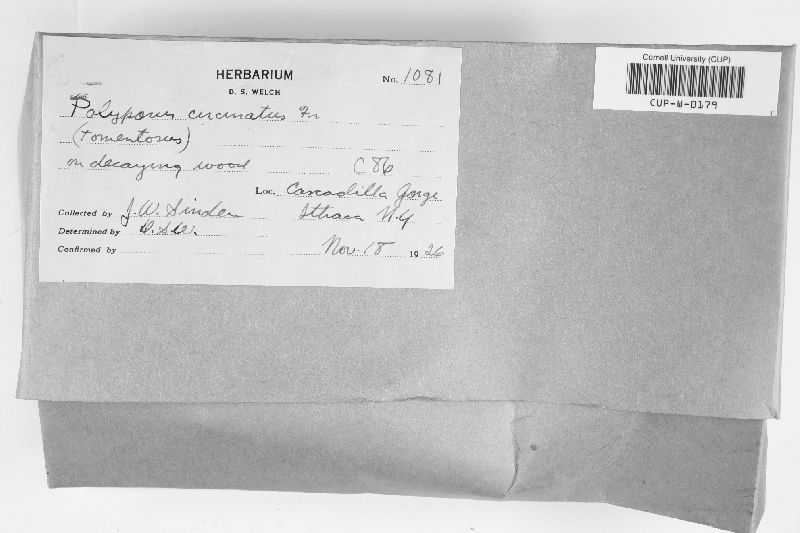 HERBARIUM
D. S. WELCH
No. 1081
Polyporus circinatus Fr
(tomentosus)
on decaying wood
C 86
Loc. Cascadilla Gorge
Ithaca N.Y
Collected by J.W. Sinden
Determined by D.S.W.
Confirmed by
Nov. 18 1926
Cornell University (CUP)
CUP-W-0179